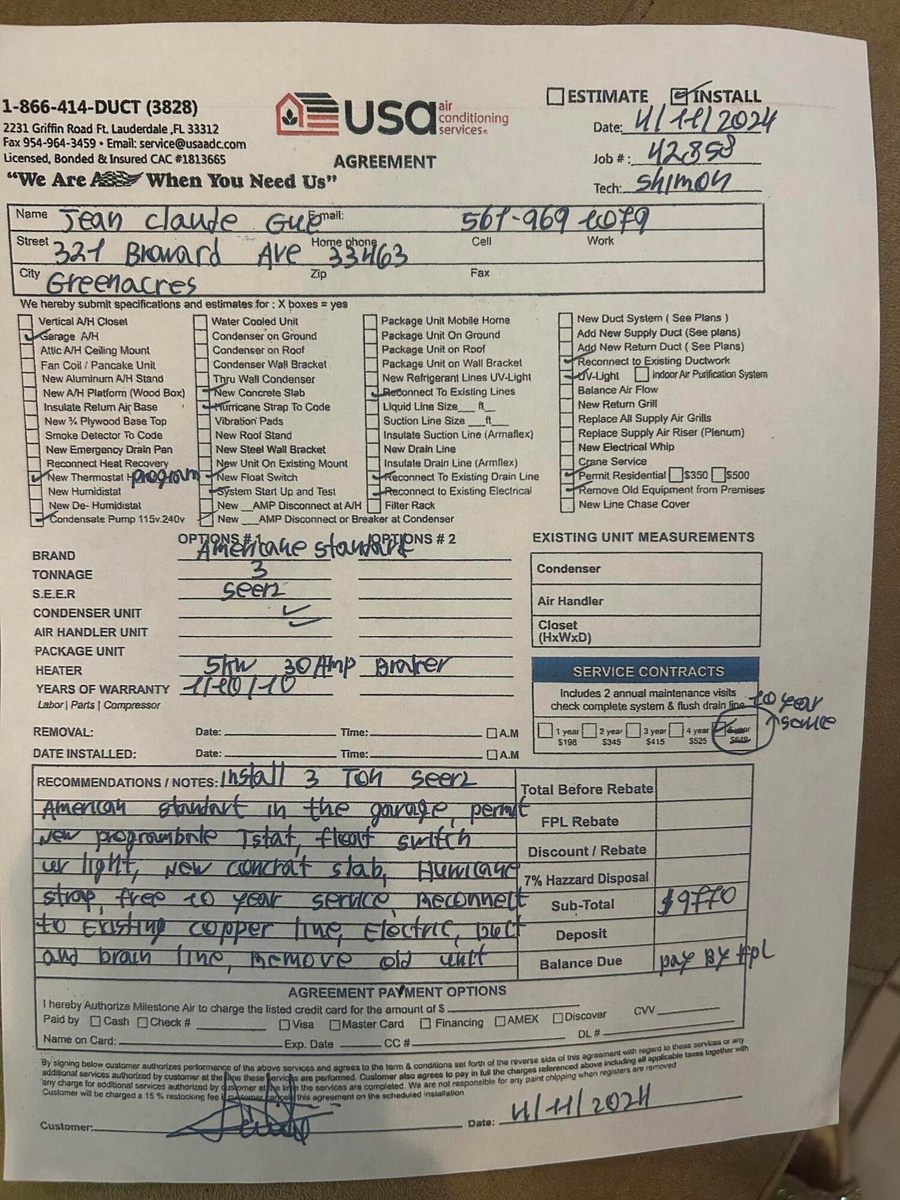 1-866-414-DUCT (3828)
2231 Griffin Road Ft. Lauderdale ,FL 33312
Fax 954-964-3459 • Email: service@usaadc.com
Licensed, Bonded & Insured CAC #1813665
"We Are When You Need Us"
usa air conditioning services
AGREEMENT
ESTIMATE INSTALL
Date: 4/11/2024
Job #: 42858
Tech: Shimon
Name Jean Claude Email: 561-969 1079
Street 321 Broward Ave Home phone 33463 Cell Work
City Greenacres Zip Fax
We hereby submit specifications and estimates for : X boxes = yes
Vertical A/H Closet
Garage A/H
Attic A/H Ceiling Mount
Fan Coil / Pancake Unit
New Aluminum A/H Stand
New A/H Platform (Wood Box)
Insulate Return Air Base
New ¾ Plywood Base Top
Smoke Detector To Code
New Emergency Drain Pan
Reconnect Heat Recovery
New Thermostat program
New Humidistat
New De- Humidistat
Condensate Pump 115v.240v
Water Cooled Unit
Condenser on Ground
Condenser on Roof
Condenser Wall Bracket
Thru Wall Condenser
New Concrete Slab
Hurricane Strap To Code
Vibration Pads
New Roof Stand
New Steel Wall Bracket
New Unit On Existing Mount
New Float Switch
System Start Up and Test
New __AMP Disconnect at A/H
New __AMP Disconnect or Breaker at Condenser
Package Unit Mobile Home
Package Unit On Ground
Package Unit on Roof
Package Unit on Wall Bracket
New Refrigerant Lines UV-Light
Reconnect To Existing Lines
Liquid Line Size___ ft_
Suction Line Size ___ft_
Insulate Suction Line (Armaflex)
New Drain Line
Insulate Drain Line (Armflex)
Reconnect To Existing Drain Line
Reconnect to Existing Electrical
Filter Rack
New Duct System ( See Plans )
Add New Supply Duct (See plans)
Add New Return Duct ( See Plans)
Reconnect to Existing Ductwork
UV-Light Indoor Air Purification System
Balance Air Flow
New Return Grill
Replace All Supply Air Grills
Replace Supply Air Riser (Plenum)
New Electrical Whip
Crane Service
Permit Residential $350 $500
Remove Old Equipment from Premises
New Line Chase Cover
OPTIONS # 1 OPTIONS # 2
BRAND Americane standart
TONNAGE 3
S.E.E.R seer2
CONDENSER UNIT
AIR HANDLER UNIT
PACKAGE UNIT
HEATER 5kw 30 Amp Braker
YEARS OF WARRANTY 1/10/10
Labor | Parts | Compressor
EXISTING UNIT MEASUREMENTS
Condenser
Air Handler
Closet
(HxWxD)
SERVICE CONTRACTS
Includes 2 annual maintenance visits
check complete system & flush drain line
10 year
1 year $198 2 year $345 3 year $415 4 year $525
REMOVAL: Date: Time: A.M
DATE INSTALLED: Date: Time: A.M
RECOMMENDATIONS / NOTES: Install 3 Ton Seer2
American standart in the garage, permit
new programbale Tstat, float switch
uv light, New concrat slab, Hurricane
strap, free 10 year service, Reconnect
to Existing copper line, Electric, Duct
and drain line, Remove old unit
Total Before Rebate
FPL Rebate
Discount / Rebate
7% Hazzard Disposal
Sub-Total $9770
Deposit
Balance Due pay By fpl
AGREEMENT PAYMENT OPTIONS
I hereby Authorize Milestone Air to charge the listed credit card for the amount of $
Paid by Cash Check # Visa Master Card Financing AMEX Discover CVV
Name on Card: Exp. Date CC # DL #
By signing below customer authorizes performance of the above services and agrees to the term & conditions set forth of the reverse side of this agreement with regard to these services or any
additional services authorized by customer at the time these services are performed. Customer also agrees to pay in full the charges referenced above including all applicable taxes together with
any charge for additional services authorized by customer at the time the services are completed. We are not responsible for any paint chipping when registers are removed
Customer will be charged a 15 % restocking fee if customer cancels this agreement on the scheduled installation
Customer: Date: 4/11/2024